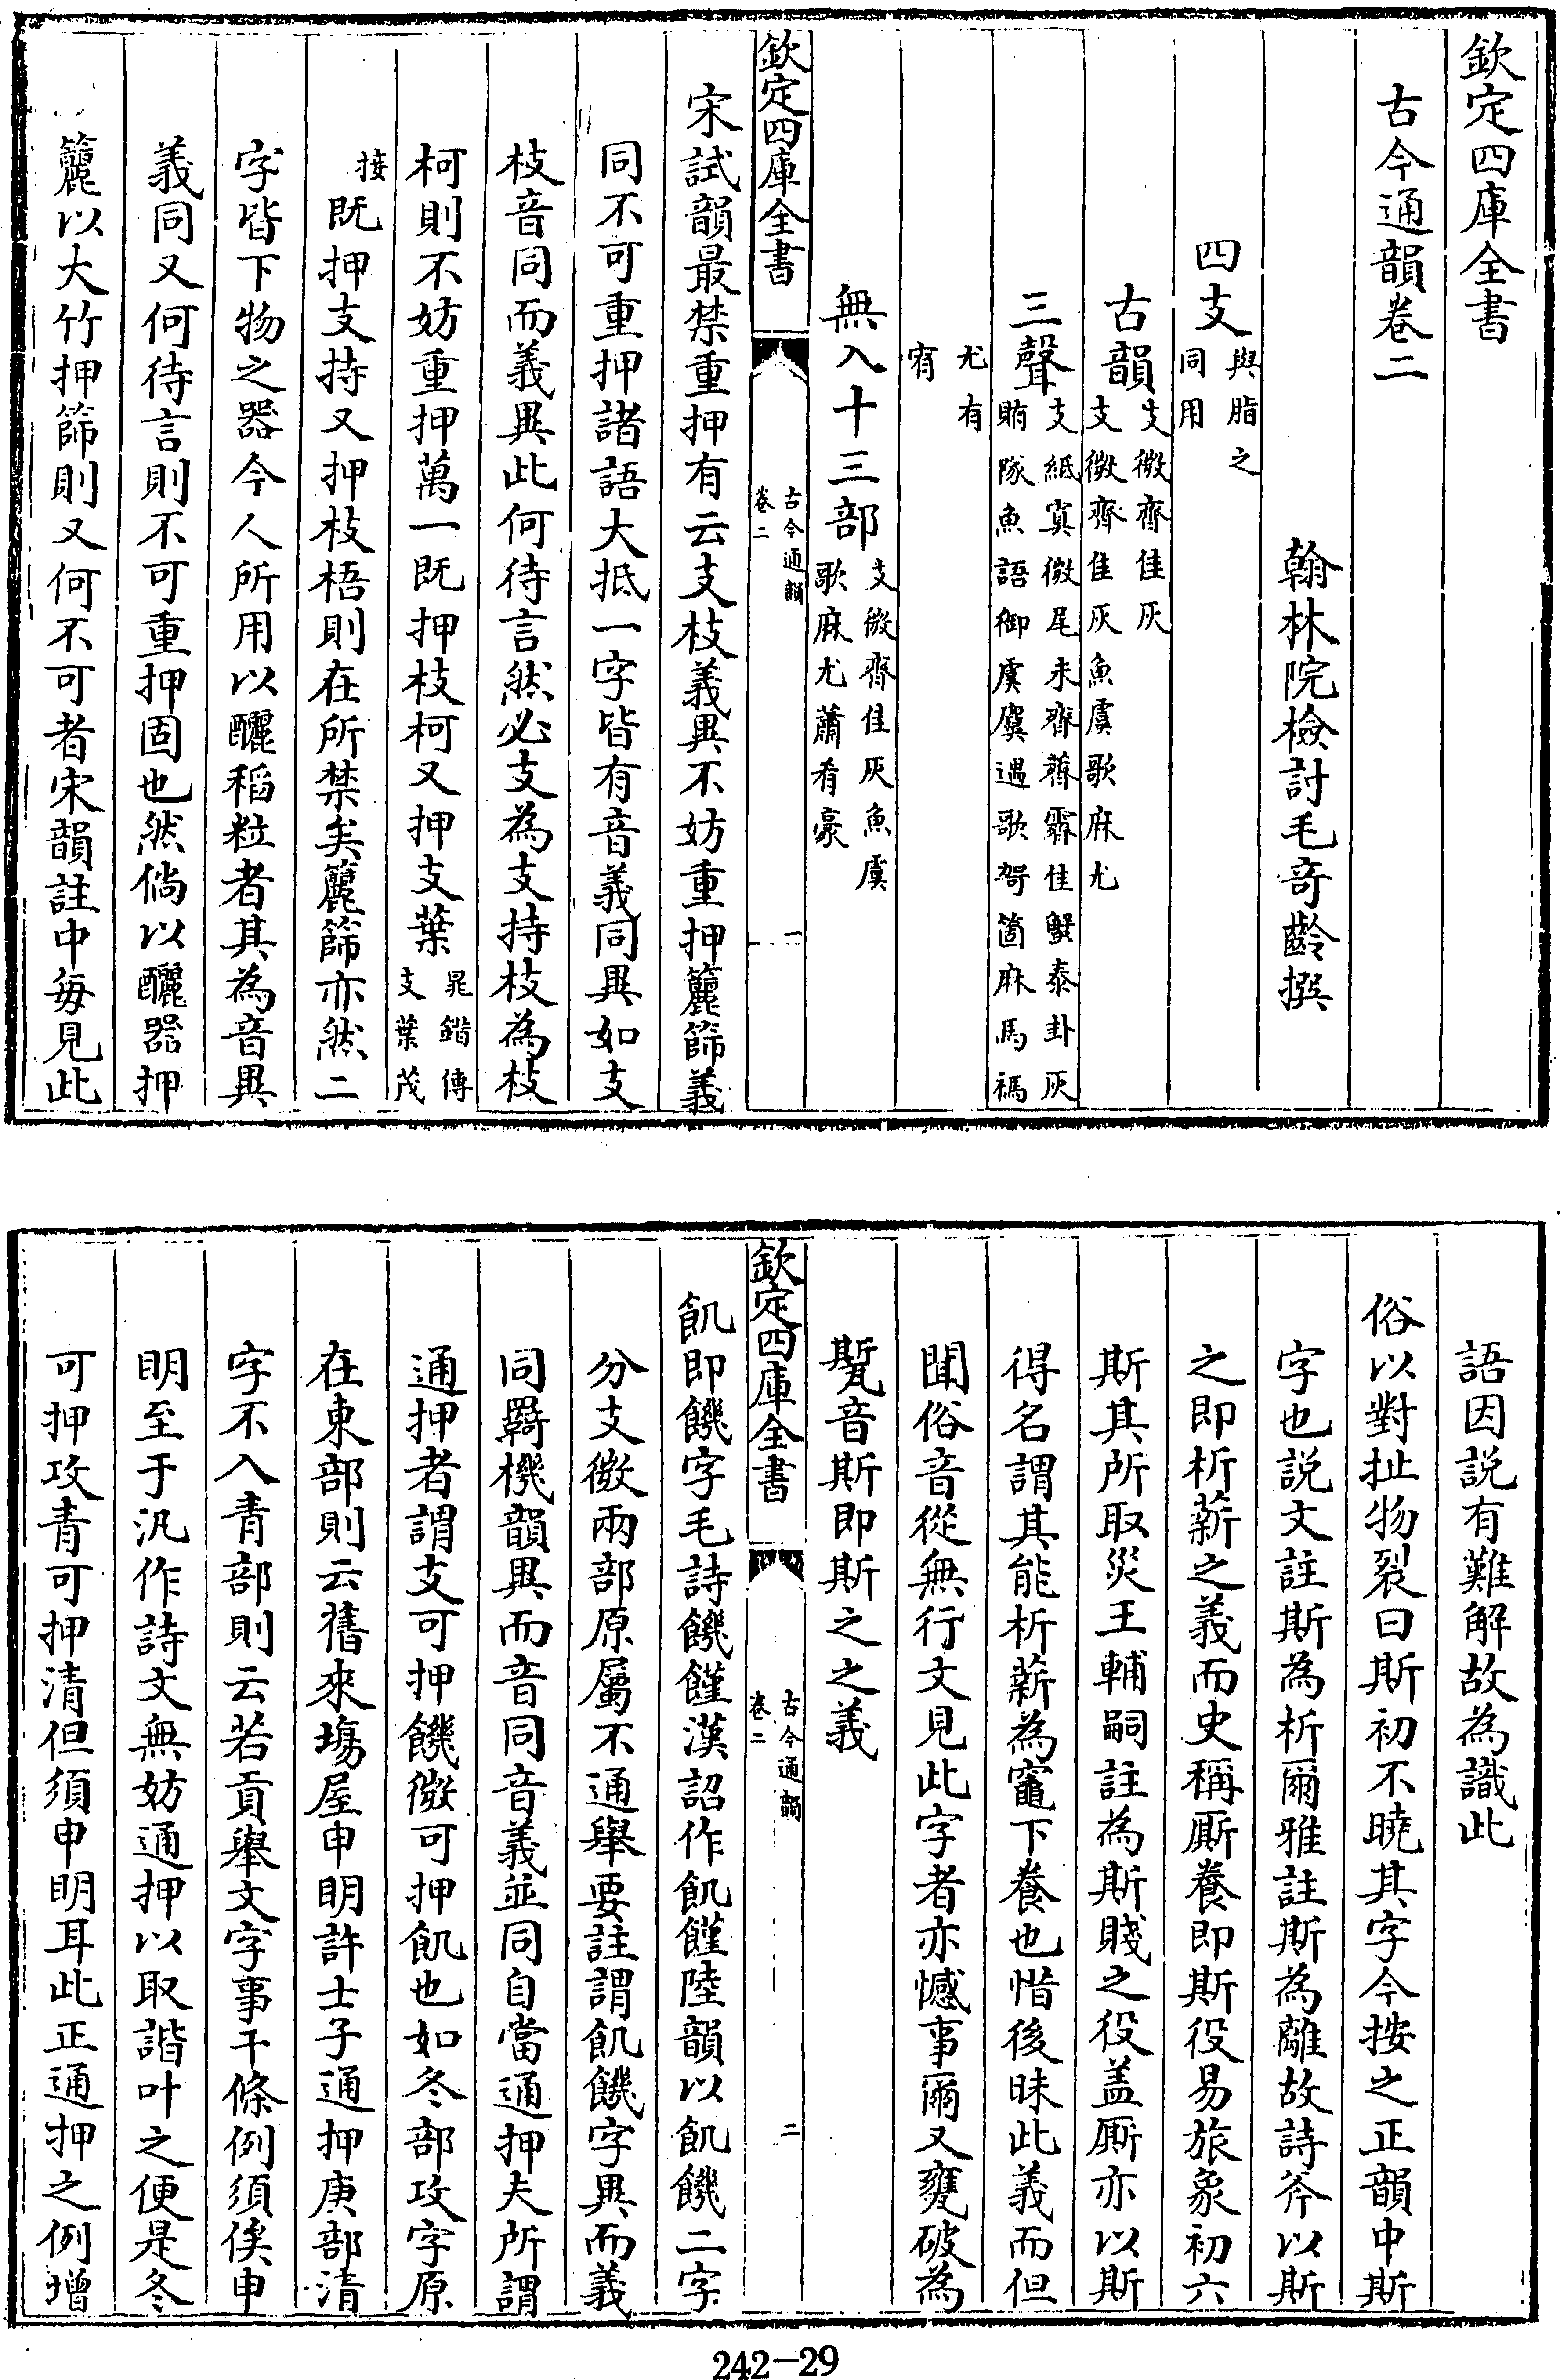 欽定四庫全書
古今通韻卷二
翰林院檢討毛竒齡撰
四支與脂之同用
古韻支微齊佳灰支微齊佳灰魚虞歌麻尤
三聲支紙寘微尾未齊薺霽佳蟹泰卦灰賄隊魚語御虞麌遇歌哿箇麻馬禡
尤有宥
無入十三部支微齊佳灰魚虞歌麻尤蕭肴豪
欽定四庫全書
古今通韻卷二
一
宋試韻最禁重押有云支枝義異不妨重押籭篩義
同不可重押諸語大抵一字皆有音義同異如支
枝音同而義異此何待言然必支為支持枝為枝
柯則不妨重押萬一既押枝柯又押支葉晁錯傳支葉茂
接既押支持又押枝梧則在所禁矣籭篩亦然二
字皆下物之器今人所用以釃稻粒者其為音異
義同又何待言則不可重押固也然倘以釃器押
籭以大竹押篩則又何不可者宋韻註中每見此
語因説有難解故為識此
俗以對扯物裂曰斯初不曉其字今按之正韻中斯
字也説文註斯為析爾雅註斯為離故詩斧以斯
之即析薪之義而史稱厮養即斯役易旅象初六
斯其所取災王輔嗣註為斯賤之役盖厮亦以斯
得名謂其能析薪為竈下養也惜後昧此義而但
聞俗音從無行文見此字者亦憾事爾又甕破為
㽄音斯即斯之之義
欽定四庫全書
古今通韻卷二
二
飢即饑字毛詩饑饉漢詔作飢饉陸韻以飢饑二字
分支微兩部原屬不通舉要註謂飢饑字異而義
同羇機韻異而音同音義並同自當通押夫所謂
通押者謂支可押饑微可押飢也如冬部攻字原
在東部則云舊來塲屋申明許士子通押庚部清
字不入青部則云若貢舉文字事干條例須俟申
明至于汎作詩文無妨通押以取諧叶之便是冬
可押攻青可押清但須申明耳此正通押之例增
242-29